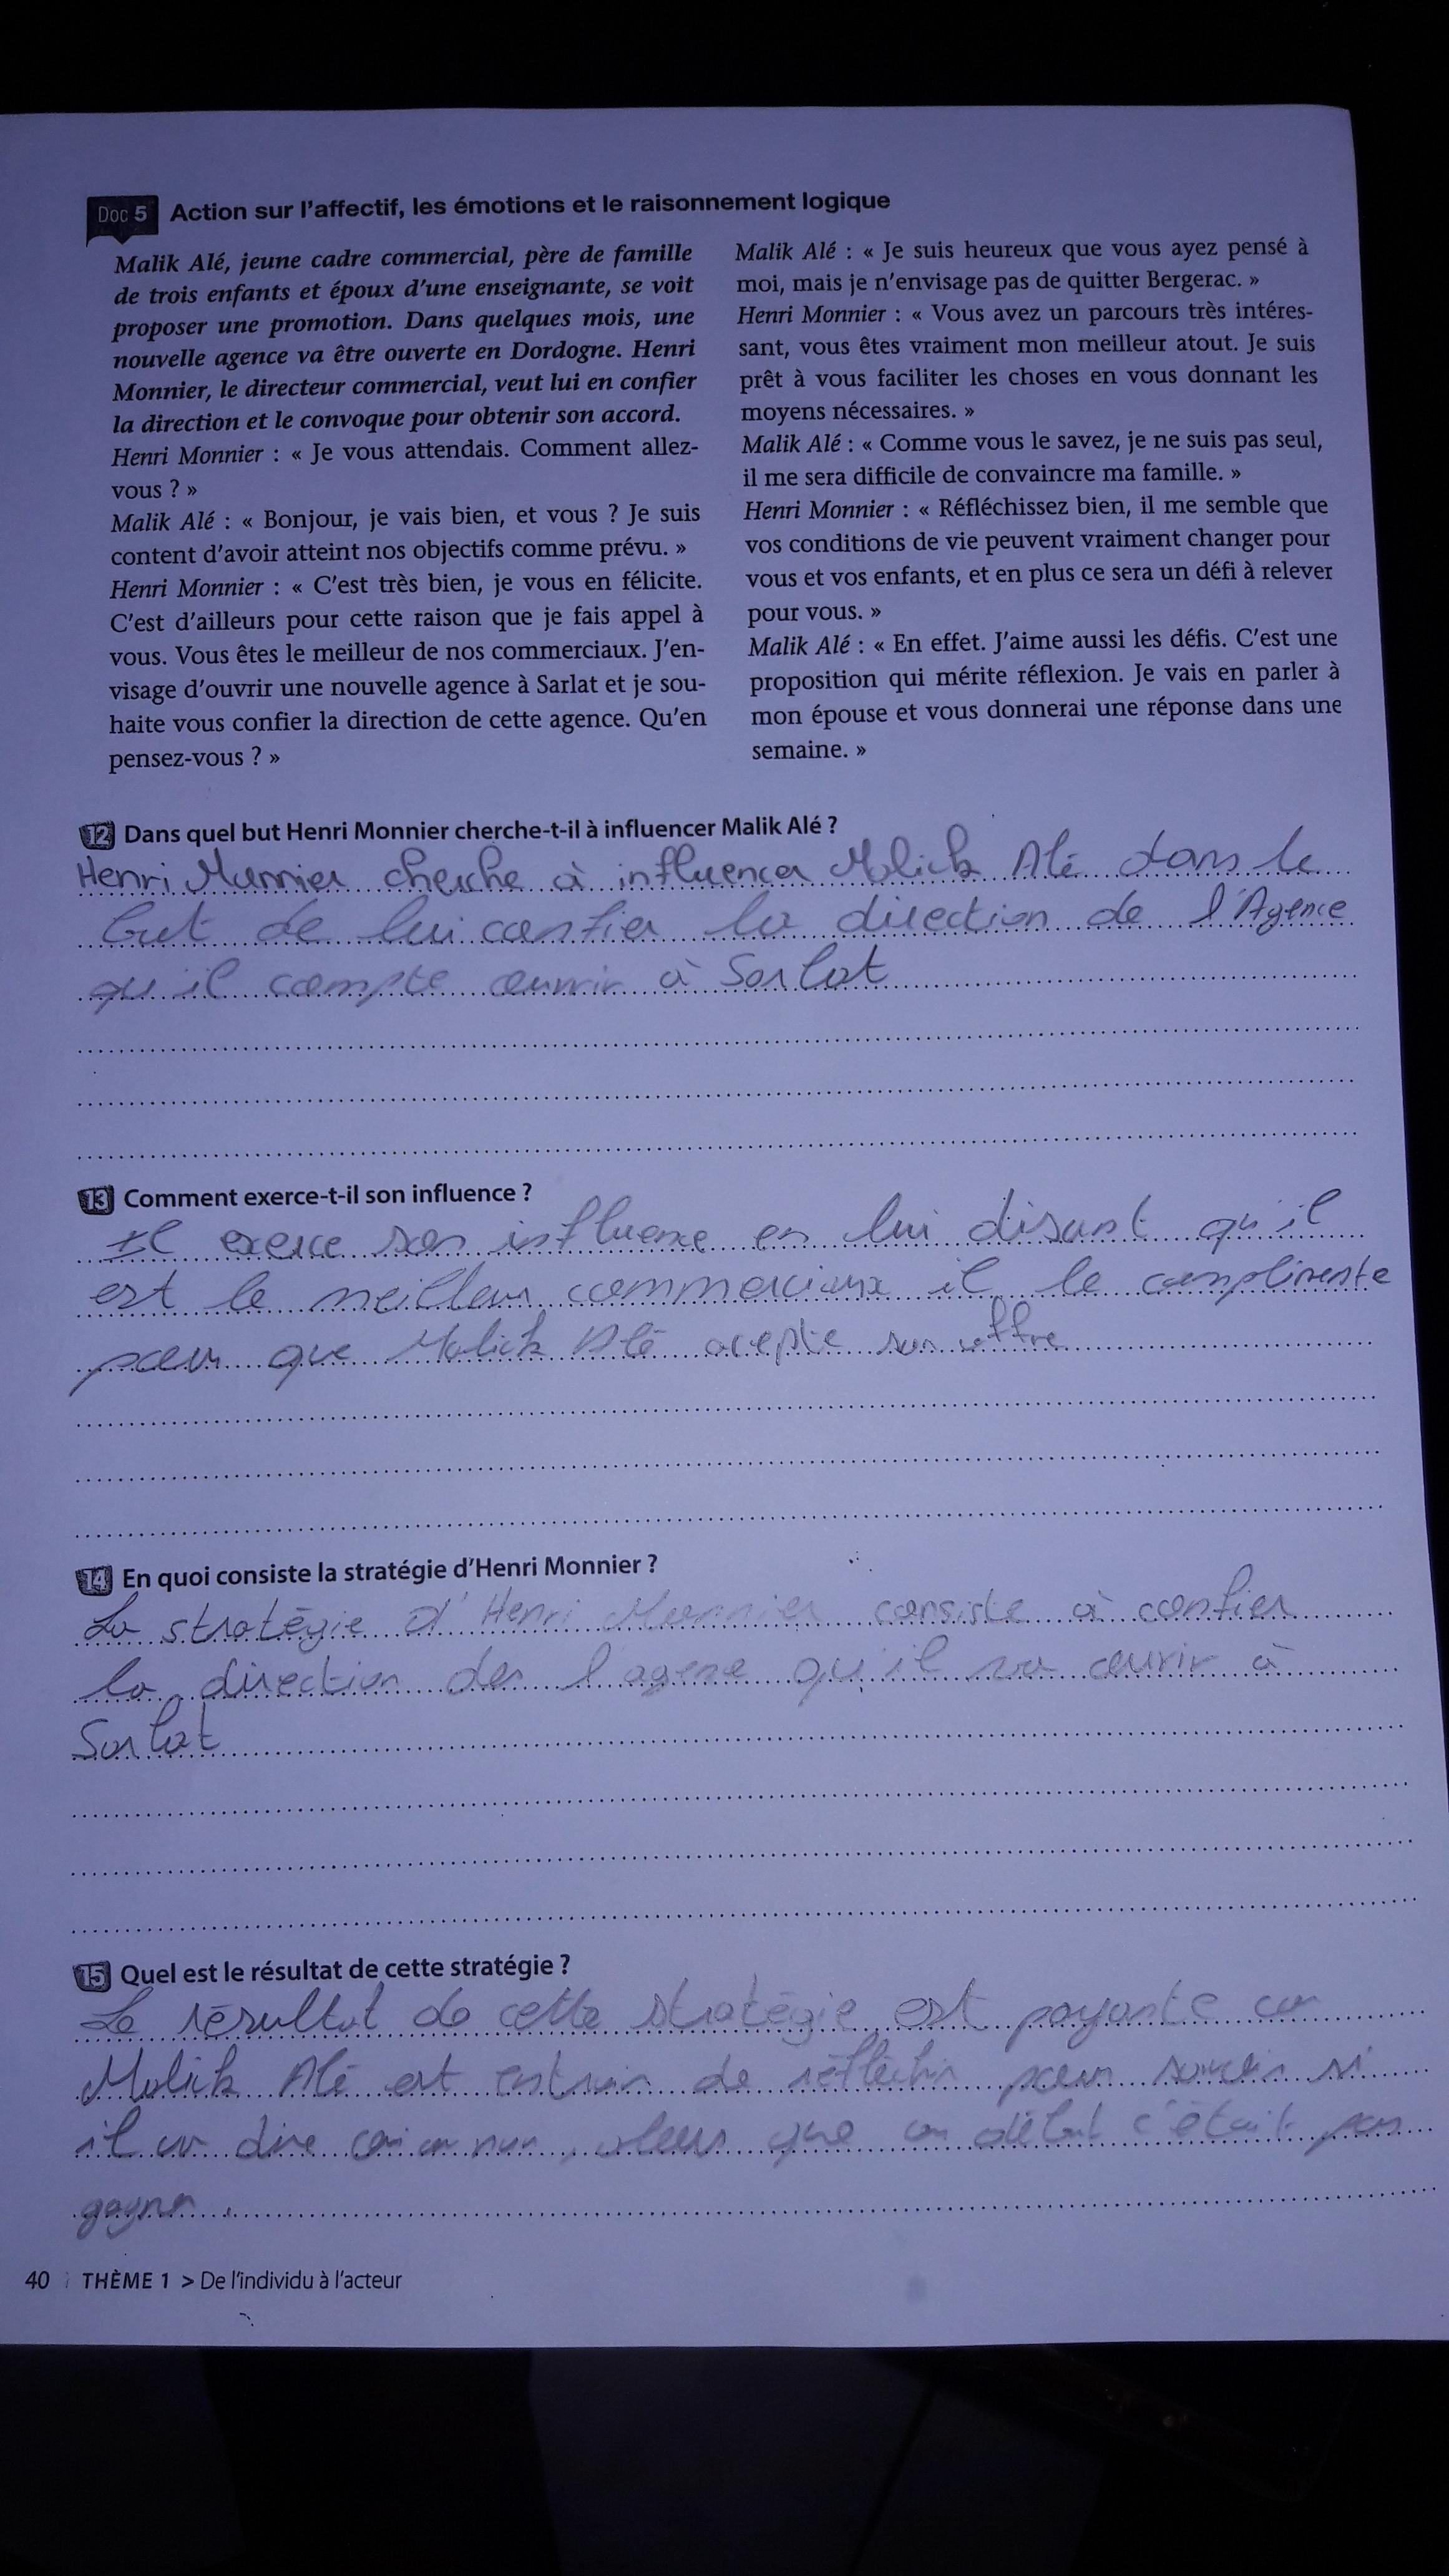 Doc 5 Action sur l'affectif, les émotions et le raisonnement logique
Malik Alé, jeune cadre commercial, père de famille
de trois enfants et époux d'une enseignante, se voit
proposer une promotion. Dans quelques mois, une
nouvelle agence va être ouverte en Dordogne. Henri
Monnier, le directeur commercial, veut lui en confier
la direction et le convoque pour obtenir son accord.
Henri Monnier : « Je vous attendais. Comment allez-
vous ? »
Malik Alé : « Bonjour, je vais bien, et vous ? Je suis
content d'avoir atteint nos objectifs comme prévu. »
Henri Monnier : « C'est très bien, je vous en félicite.
C'est d'ailleurs pour cette raison que je fais appel à
vous. Vous êtes le meilleur de nos commerciaux. J'en-
visage d'ouvrir une nouvelle agence à Sarlat et je sou-
haite vous confier la direction de cette agence. Qu'en
pensez-vous ? »
Malik Alé : « Je suis heureux que vous ayez pensé à
moi, mais je n'envisage pas de quitter Bergerac. »
Henri Monnier : « Vous avez un parcours très intéres-
sant, vous êtes vraiment mon meilleur atout. Je suis
prêt à vous faciliter les choses en vous donnant les
moyens nécessaires. »
Malik Alé : « Comme vous le savez, je ne suis pas seul,
il me sera difficile de convaincre ma famille. »
Henri Monnier : « Réfléchissez bien, il me semble que
vos conditions de vie peuvent vraiment changer pour
vous et vos enfants, et en plus ce sera un défi à relever
pour vous. »
Malik Alé : « En effet. J'aime aussi les défis. C'est une
proposition qui mérite réflexion. Je vais en parler à
mon épouse et vous donnerai une réponse dans une
semaine. »
12 Dans quel but Henri Monnier cherche-t-il à influencer Malik Alé ?
Henri Monnier cherche à influencer Malick Alé dans le
but de lui confier la direction de l'Agence
qu'il compte ouvrir à Sarlat
13 Comment exerce-t-il son influence ?
Il exerce son influence en lui disant qu'il
est le meilleur commerciaux il le complimente
pour que Malick Alé acepte son offre
14 En quoi consiste la stratégie d'Henri Monnier ?
La stratégie d'Henri Monnier consiste à confier
la direction de l'agence qu'il va ouvrir à
Sarlat
15 Quel est le résultat de cette stratégie ?
Le résultat de cette stratégie est payante car
Malick Alé est entrain de réfléchir pour savoir si
il va dire oui ou non, alors que au début c'était pas
gagner.
40 THÈME 1 > De l'individu à l'acteur